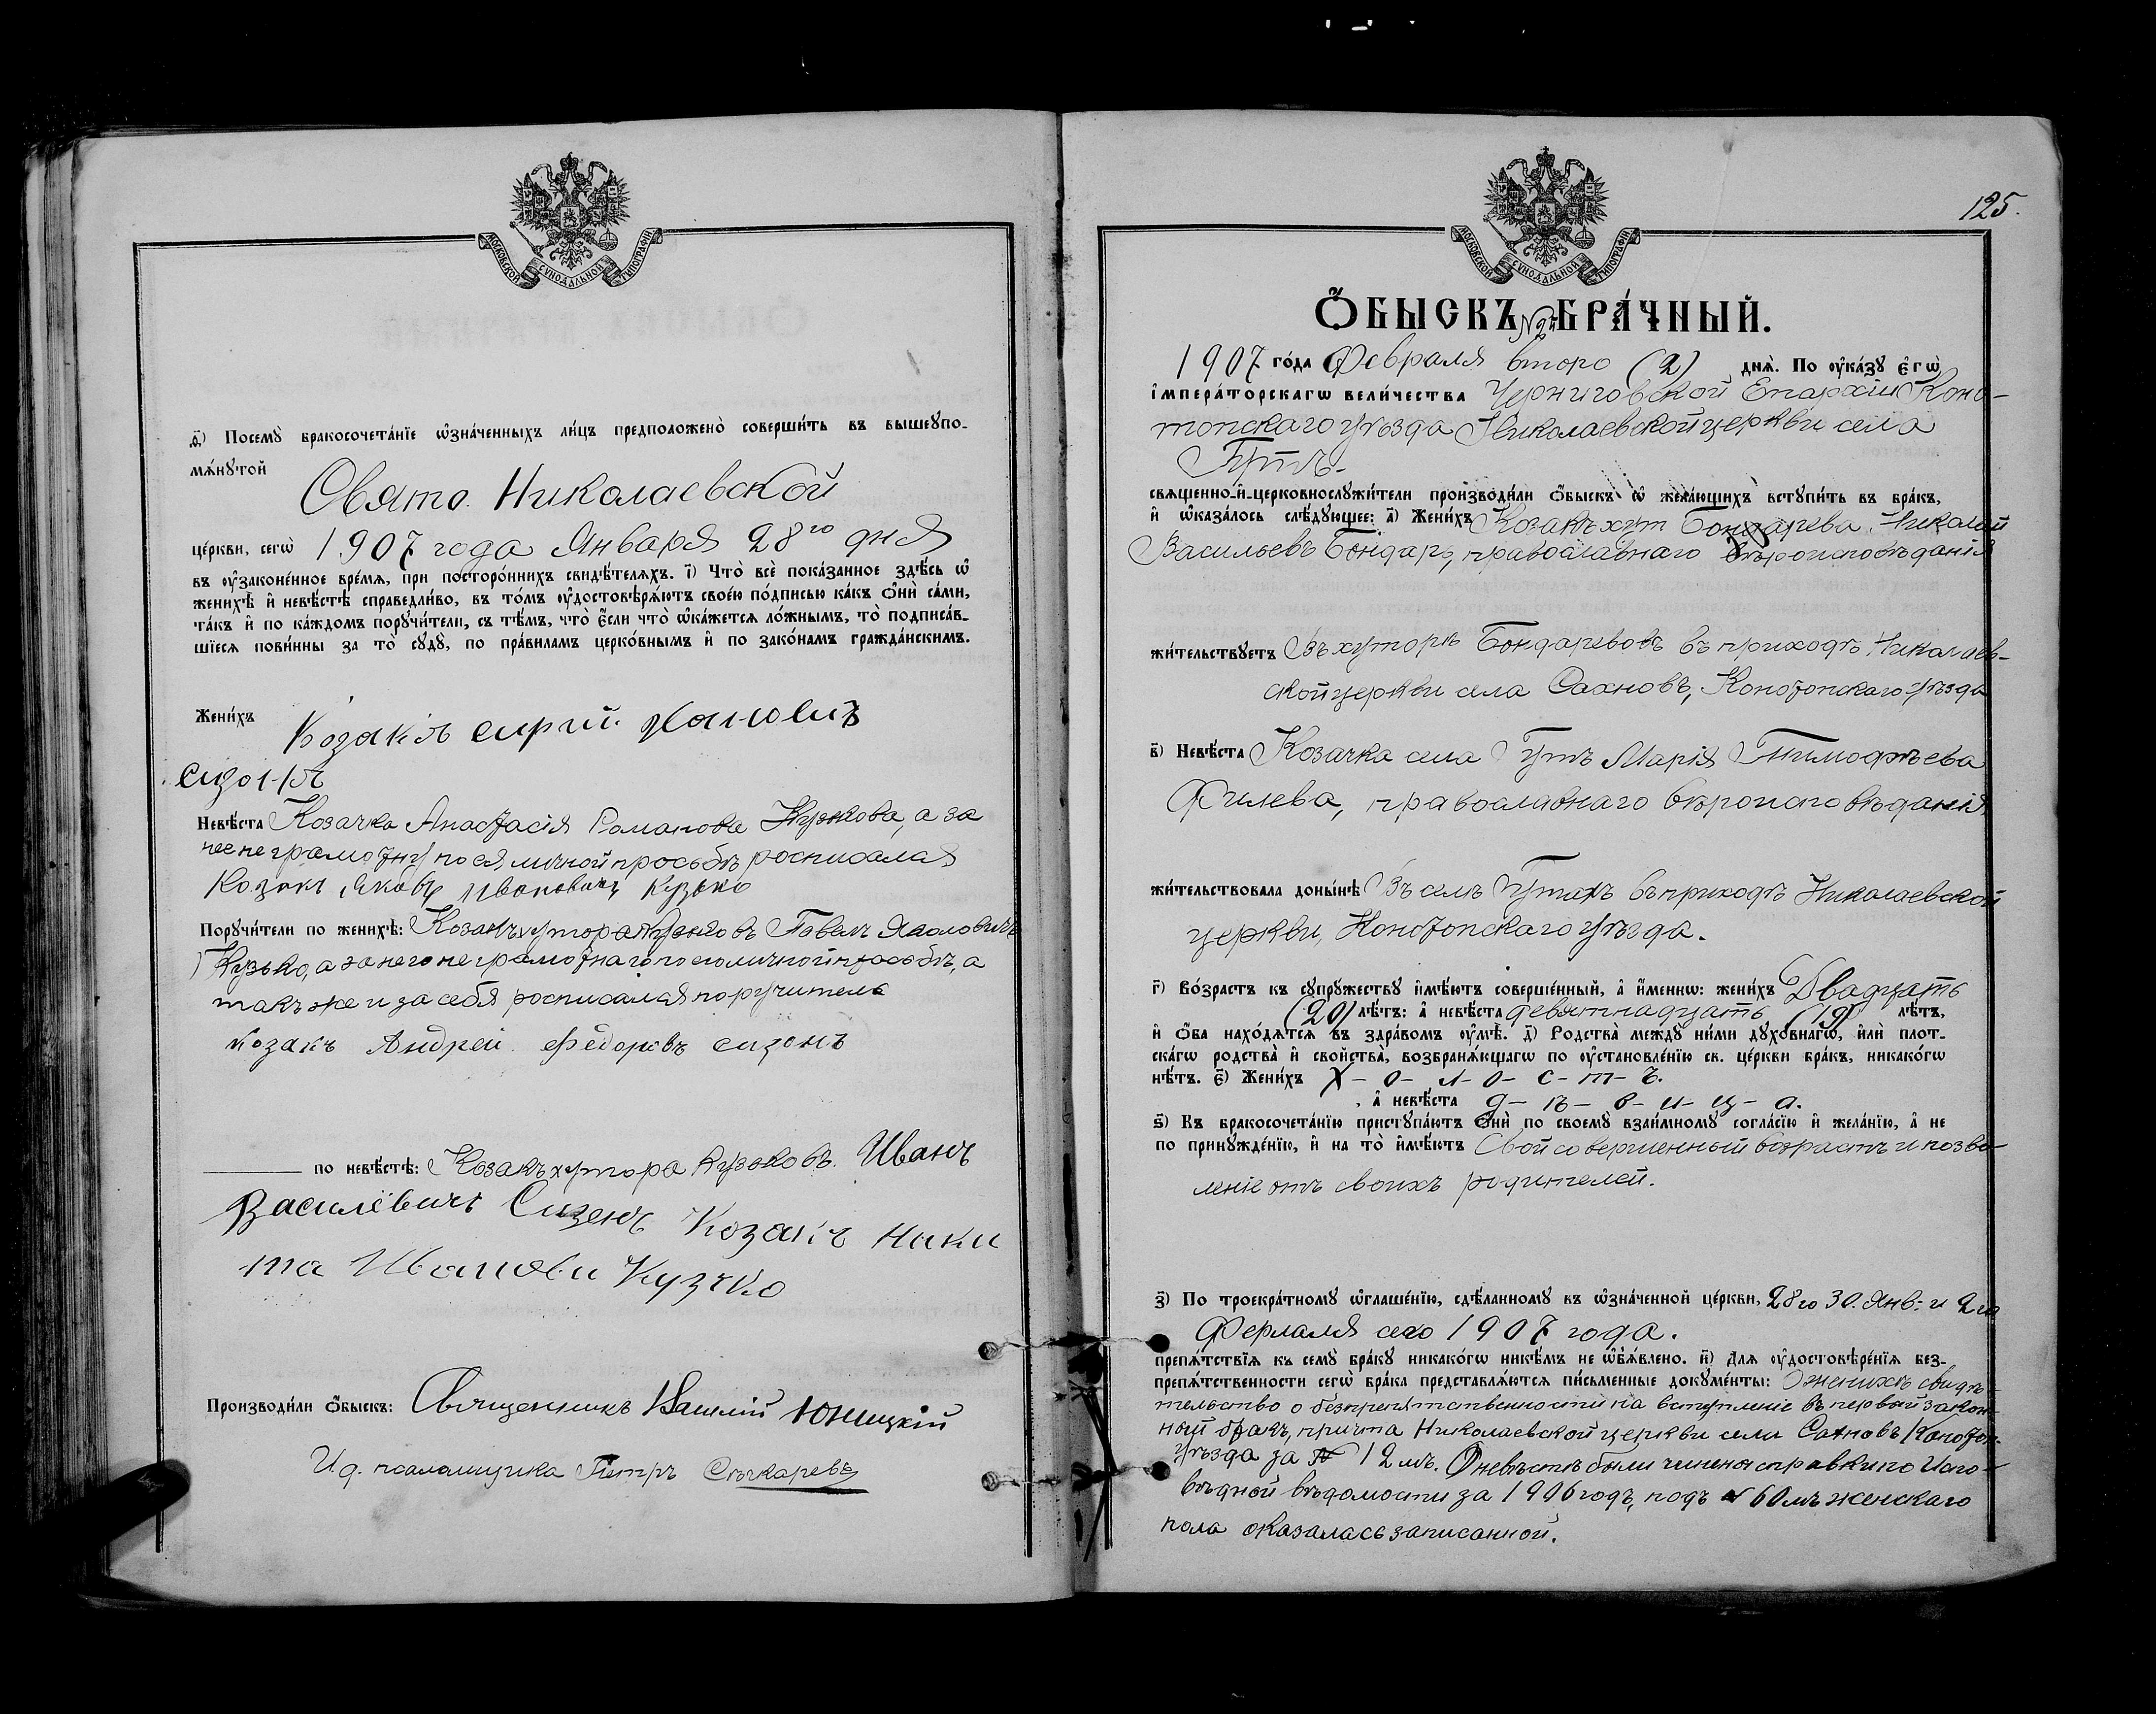 МОСКОВСКОЙ СѴНОДАЛЬНОЙ ТИПОГРАФІИ
ѳ҃) Посемꙋ̀ бракосочета́нїе ѡ҆зна́ченныхъ ли́цъ предположено̀ соверши́ть въ вышеꙋпо-
мѧ́нꙋтой
Свято. Николаевской
це́ркви, сегѡ̀ 1907 года Января 28го дня
въ ᲂу҆законе́нное вре́мѧ, при посторо́ннихъ свидѣ́телѧхъ. і҃) Что̀ всѐ пока́занное здѣ́сь ѡ҆
женихѣ̀ и҆ невѣ́стѣ справедли́во, въ то́мъ ᲂу҆достовѣрѧ́ютъ свое́ю по́дписью ка́къ ѻ҆нѝ са́ми,
та́къ и҆ по ка́ждомъ порꙋчи́тели, съ тѣ́мъ, что̀ є҆́сли что̀ ѡ҆ка́жетсѧ ло́жнымъ, то̀ подписа́в-
шїесѧ пови́нны за то̀ сꙋдꙋ̀, по пра́виламъ церко́внымъ и҆ по зако́намъ гражда́нскимъ.
Жени́хъ Козакъ
Сизонъ
Невѣ́ста Козачка Анастасія Романова Кузькова, а за
нее неграмотну по ея личной просьбѣ росписался
Козакъ Яковъ Ивановичъ Кузько
Порꙋчи́тели по женихѣ̀: Козакъ хутора Кузьковъ Павелъ
Кузько, а за него неграмотнаго по его личной просьбѣ, а
такъ же и за себя росписался поручитель
козакъ Андрей Федоровъ Сизонъ
по невѣ́стѣ: Козакъ хутора Кузьковъ. Иванъ
Василёвичъ Сизенъ Козакъ Ники
та Иванови Кузько
Производи́ли ѻ҆́быскъ: Священникъ Василій Юницкій
И. д. псаломщика Петръ Сѣчкаревъ
125.
МОСКОВСКОЙ СѴНОДАЛЬНОЙ ТИПОГРАФІИ
Ѻ҆́БЫСКЪ № 9й БРА́ЧНЫЙ.
1907 го́да Февраля второ (2) днѧ̀. По ᲂу҆ка́зꙋ є҆гѡ̀
і҆мпера́торскагѡ вели́чества Черниговской Епархіи Коно-
топскаго уѣзда Николаевской церкви села
Гутъ-
свѧщенно-и҆-церковнослꙋжи́тели производи́ли ѻ҆́быскъ ѡ҆ жела́ющихъ встꙋпи́ть въ бра́къ,
и҆ ѡ҆каза́лось слѣ́дꙋющее: а҃) Жени́хъ Козакъ хут Бондарева Николай
Васильевъ Бондарь, православнаго вѣроисповѣданія
жи́тельствꙋетъ Въ хуторѣ Бондаревовъ въ приходѣ Николаев-
ской церкви села Сахновъ, Конотопскаго уѣзда
в҃) Невѣ́ста Козачка села Гутъ Марія Тимофѣева
Филева, православнаго вѣроисповѣданія
жи́тельствовала доны́нѣ Въ селѣ Гутахъ въ приходѣ Николаевской
церкви, Конотопскаго уѣзда.
г҃) Во́зрастъ къ сꙋпрꙋ́жествꙋ и҆мѣ́ютъ соверше́нный, а҆ и҆́меннѡ: жени́хъ Двадцать
(20) лѣ́тъ: а҆ невѣ́ста девятнадцать (19) лѣ́тъ,
и҆ ѻ҆́ба нахо́дѧтсѧ въ здра́вомъ ᲂу҆мѣ̀. д҃) Родства̀ междꙋ ни́ми дꙋхо́внагѡ, и҆лѝ плот-
ска́гѡ родства̀ и҆ сво́йства, возбранѧ́ющагѡ по ᲂу҆становле́нїю св. це́ркви бра́къ, никако́гѡ
нѣ́тъ. є҃) Жени́хъ х-о-л-о-с-т-ъ.
, а҆ невѣ́ста д-ѣ-в-и-ц-а.
ѕ҃) Къ бракосочета́нїю пристꙋпа́ютъ ѻ҆нѝ по своемꙋ взаи́мномꙋ согла́сїю и҆ жела́нїю, а҆ не
по принꙋжде́нїю, и҆ на то̀ и҆мѣ́ютъ Свой совершенный возрастъ и позво-
леніе отъ своихъ родителей.
з҃) По троекра́тномꙋ ѡ҆глаше́нїю, сдѣ́ланномꙋ въ ѡ҆зна́ченной це́ркви, 28го 30. Янв: и 2го
Ферлаля сего 1907 года.
препѧ́тствїѧ къ семꙋ̀ бра́кꙋ никако́гѡ никѣ́мъ не ѡ҆б̾ѧ́влено. и҃) Длѧ ᲂу҆достовѣре́нїѧ без-
препѧ́тственности сегѡ̀ бра́ка представлѧ́ютсѧ пи́сьменные докꙋме́нты: О женихѣ свидѣ-
тельство о безпрепятственности на вступленіе въ первый закон-
ный бракъ, причта Николаевской церкви села Сахновъ Конотоп.
уѣзда за № 12мъ. О невѣстѣ были чинены справки по Испо-
вѣдной вѣдомости за 1906 годъ, подъ № 60мъ женскаго
пола оказалась записанной.